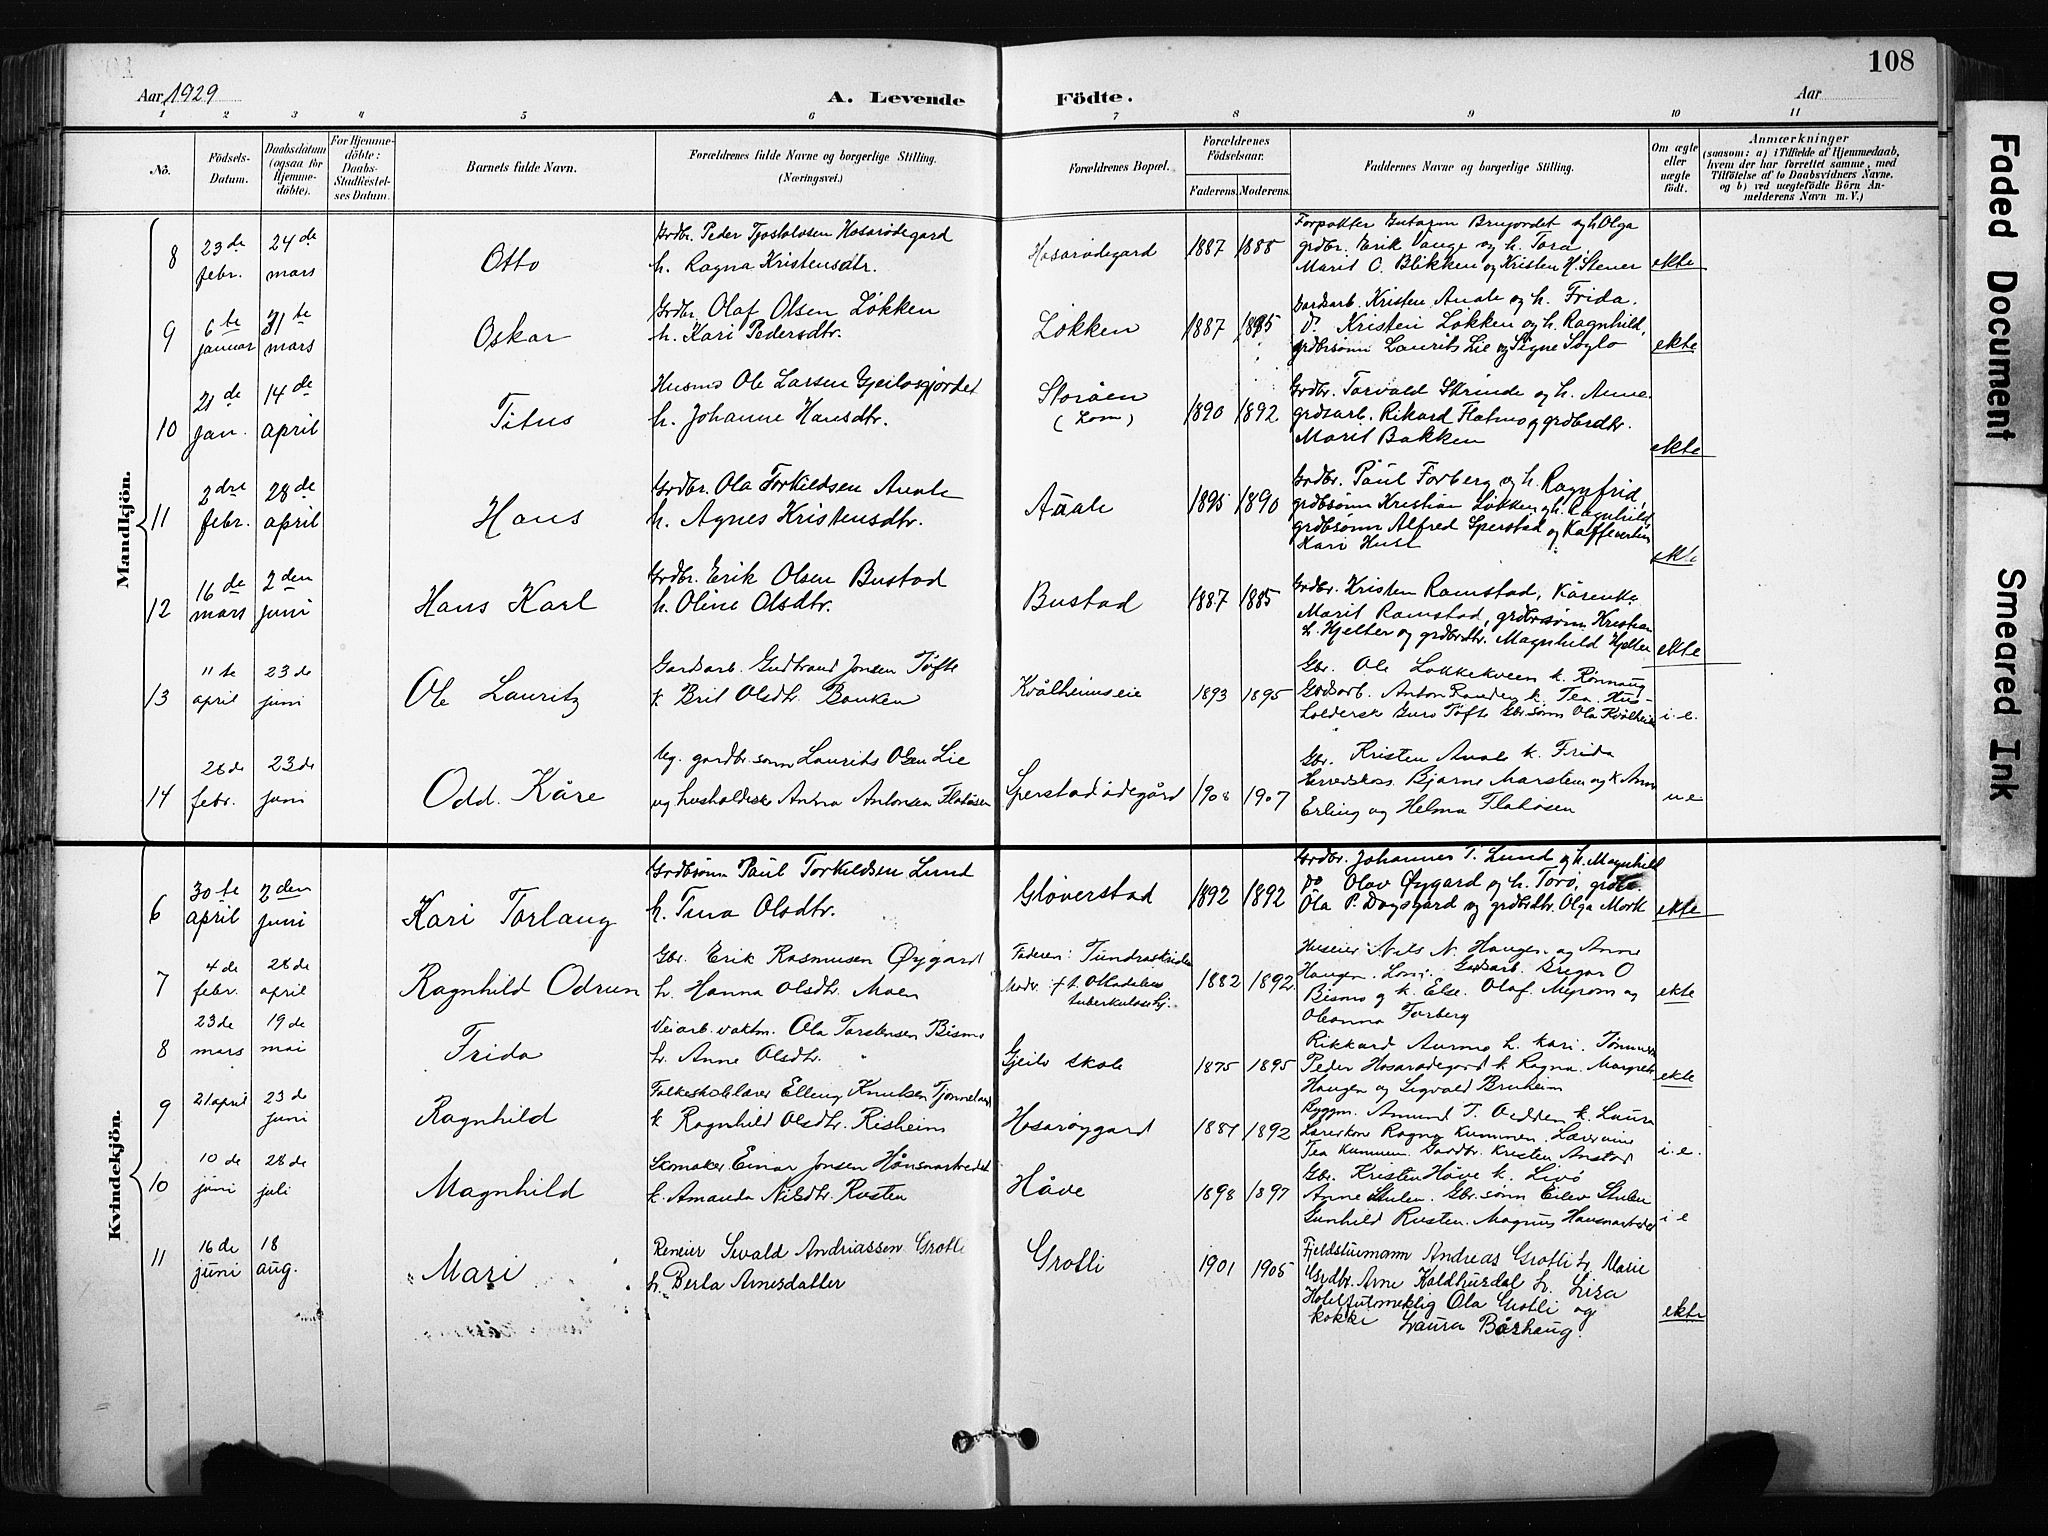 108
Aar 1929
A. Levende Födte.
Aar
1 2 3 4 5 6 7 8 9 10 11
No.
Födsels-Datum.
Daabsdatum (ogsaa for Hjemmedöbte).
For Hjemmedöbte: Daabs-Stadfæstelses Datum.
Barnets fulde Navn.
Forældrenes fulde Navne og borgerlige Stilling. (Næringsvei.)
Forældrenes Bopæl.
Forældrenes Födselsaar.
Faderens. Moderens.
Faddernes Navne og borgerlige Stilling.
Om ægte eller uægte födt.
Anmærkninger
(saasom: a) i Tilfælde af Hjemmedaab, hvem der har forrettet samme, med Tilföielse af to Daabsvidners Navne, og b) ved uægtefödte Börn Anmelderens Navn m. V.)
Mandkjön.
8 23de febr. 24de mars Otto
Grdbr. Peder Hosarødegard
h. Ragna Kristensdtr.
Hosarødegard 1887 1888
Forpakter Brujordet og h. Olga
grdbr. Erik og h. Tora
Marit O. Blikken og Kristen H. Stener
ekte
9 6te januar 31te mars Oskar
Grdbr. Olaf Olsen Løkken
h. Kari Pedersdtr.
Løkken 1887 1895
Gardsarb. Kristen Aaale og h. Frida.
Do Kristen Løkken og h. Ragnhild,
grdbrsønn Laurits Lie og Signe Soglo
ekte
10 21de jan. 14de april Titus
Husmd Ole Larsen Gjeilosgjordet
h. Johanne Hansdtr.
Storøen (Lom) 1890 1892
Grdbr. Torvald Skrinde og h. Anne.
grdsarb. Rikard Flatmo og grdbrdtr.
Marit Bakken
ekte
11 2dre febr. 28de april Hans
Grdbr. Ola Torkildsen Aaale
h. Agnes Kristensdtr.
Aaale 1895 1890
Grdbr. Paul Forberg og h. Ragnfrid,
grdbrsønn Kristian Løkken og h. Ragnhild
grdbrsønn Alfred Sperstad og Kaffevertin
Kari Hust
ekte
12 16de mars 2den juni Hans Karl
Grdbr. Erik Olsen Bustad
h. Oline Olsdtr.
Bustad 1887 1885
Grdbr. Kristen Ramstad,
Marit Ramstad, grdbrsønn Kristian
L. Hjelter og grdbrdtr. Magnhild Hjelter
ekte
13 11te april 23de juni Ole Lauritz
Gardsarb. Gudbrand Jonsen Tøfte
k. Brit Olsdtr. Bakken
Kvålheimseie 1893 1895
Gbr. Ole Løkkekveen k. Rønnaug
Grdsarb. Anton Randen k. Tea. Hus-
holdersk Guro Tøfte Gbr.sønn Ola Kvålheim
i.e.
14 28de febr. 23de juni Odd. Kåre
Ug. gardbr.sønn Laurits Olsen Lie
og husholdersk Anna Antonsen Flatøsen
Sperstadødegård 1908 1907
Gbr. Kristen Aaale k. Frida
Herredskass. Bjarne Marstein og k. Anna
Erling og Helma Flatøsen
u e
Kvindekjön.
6 30te april 2den juni Kari Torlaug
Grdbrsønn Paul Torkildsen Lund
h. Tina Olsdtr.
Gløverstad 1892 1892
Grdbr. Johannes T. Lund og h. Magnhild
Do Olav Øygard og h. Torø,
Ola P. Dagsgard og grdbrdtr. Olga Mork
ekte
7 4de febr. 28de april Ragnhild Odrun
Gbr. Erik Rasmusen Øygard
h. Hanna Olsdtr. Moen
Faderen: Tundraskriden
Moder: + t. Ottadalens tuberkulosehj.
1882 1892
Huseier Nils N. Haugen og Anne
Haugen. Lom. Grdsarb. Bregar O
Bismo og k. Else. Olaf Mejrom og
Oleanna Forberg
ekte
8 23de mars 19de mai Frida
Veiarb.vaktm. Ola Torstensen Bismo
h. Anne Olsdtr.
Gjeilo skole 1875 1895
Rikkard Aurmo h. Kari.
Peder Hosarødegard k. Ragna. Margreth
Haugen og Sigvald Bruheim
ekte
9 21 april 23de juni Ragnhild
Folkeskolelærer Elling Knutsen Tjønneland
k Ragnhild Olsdtr. Risheim
Hosarøygard 1887 1892
Byggm. Amund T. Odden k. Laura
Lærerkone Ragna Kummen. Lærerinne
Tea Kummen. Gardbr. Kristen Anstad
i.e.
10 10de juni 28de juli Magnhild
Skomaker Einar Jonsen Hånsnartredet
k. Amanda Nilsdtr. Rusten
Håve 1898 1897
Gbr. Kristen Håve k. Livø
Anne Stulen. Gbr.sønn Eilev Stulen
Gunhild Rusten. Magnus Hansnartredet
i e
11 16de juni 18 aug. Mari
Reneier Sivald Andriassen Grotli
h. Berta Arnesdatter
Grotli 1901 1905
Fjeldstuemann Andreas Grotli h. Marie
Grdbr. Arne Koldhusdal h. Lisa
Hotelfutmektig Ola Grotli og
kokke Laura Bårhaug.
ekte
Faded Document
Smeared Ink